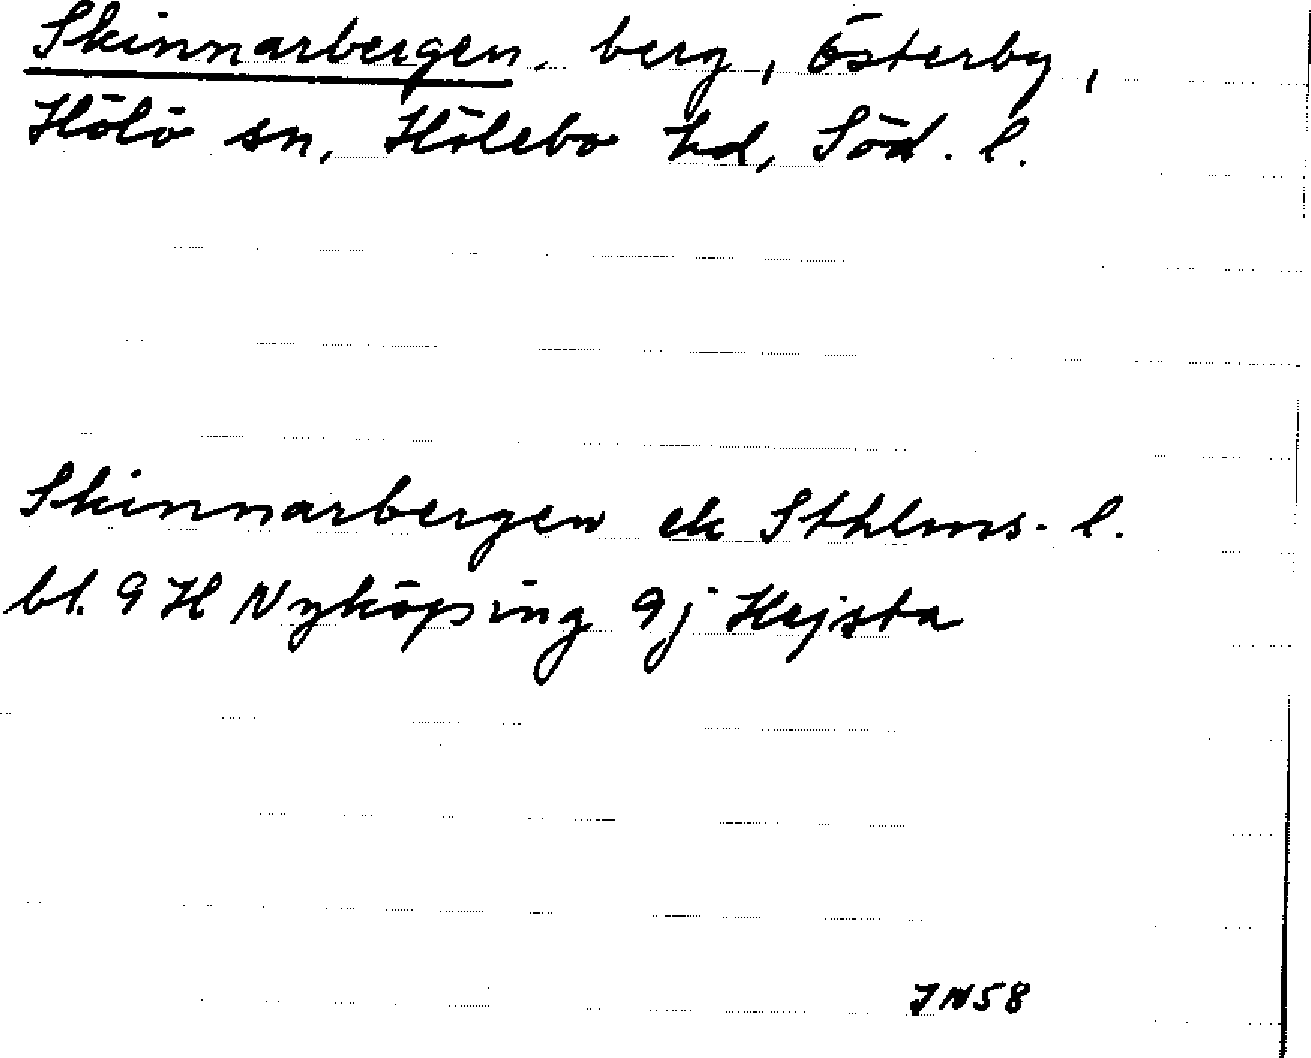 Skinnarbergen, berg, Österby,
Hölö sn, Hölebo hd, Söd. l.
Skinnarbergen ek Sthlms. l.
bl. 9 H Nyköping 9j Hejsta
JN58